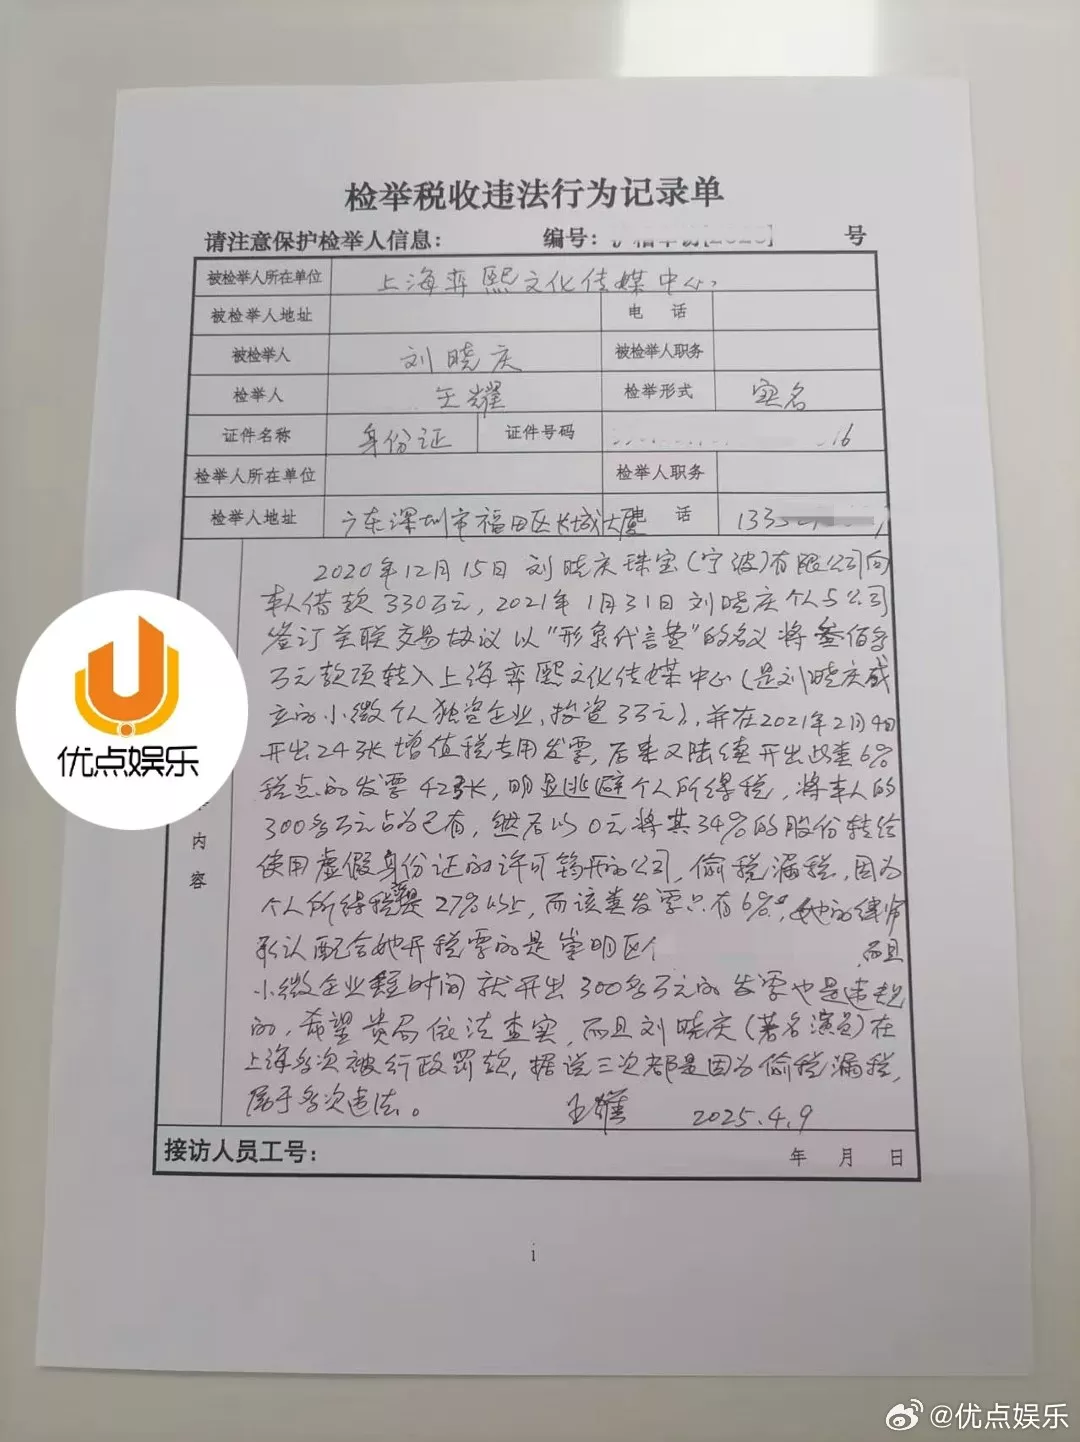 检举税收违法行为记录单
请注意保护检举人信息： 编号： 号
被检举人所在单位 上海弈熙文化传媒中心
被检举人地址 电 话
被检举人 刘晓庆 被检举人职务
检举人 王耀 检举形式 实名
证件名称 身份证 证件号码 16
检举人所在单位 检举人职务
检举人地址 广东深圳市福田区长城大厦 电 话 133
2020年12月15日刘晓庆珠宝(宁波)有限公司向
本人借款330万元，2021年1月31日刘晓庆个人与公司
签订关联交易协议以“形象代言费”的名义将叁佰多
万元款项转入上海弈熙文化传媒中心(是刘晓庆成
立的小微个人独资企业，投资3万元)，并在2021年2月4日
开出24张增值税专用发票，后来又陆续开出此类6%
税点的发票42张，明显逃避个人所得税，将本人的
300多万元占为己有，然后以0元将其34%的股份转给
使用虚假身份证的许可筠开的公司，偷税漏税，因为
个人所得税是27%以上，而该类发票只有6%。她的律师
承认配合她开税票的是崇明区个 而且
小微企业短时间就开出300多万元的发票也是违规
的，希望贵局依法查实，而且刘晓庆(著名演员)在
上海多次被行政罚款，据说三次都是因为偷税漏税，
属于多次违法。 王耀 2025.4.9
内
容
接访人员工号： 年 月 日
1
优点娱乐
@优点娱乐